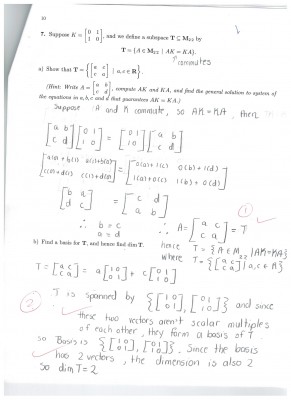 10
7. Suppose K = [0 1; 1 0], and we define a subspace T ⊆ M₂₂ by
T = {A ∈ M₂₂ | AK = KA}.
↑ commutes
a) Show that T = {[a c; c a] | a, c ∈ R}.
(Hint: Write A = [a b; c d], compute AK and KA, and find the general solution to system of
the equations in a, b, c and d that guarantees AK = KA.)
Suppose A and K commute, so AK = KA, then
[a b; c d] [0 1; 1 0] = [0 1; 1 0] [a b; c d]
[a(0) + b(1) a(1)+b(0); c(0)+d(1) c(1)+d(0)] = [0(a)+1(c) 0(b)+1(d); 1(a)+0(c) 1(b)+0(d)]
[b a; d c] = [c d; a b]
∴ b = c
a = d
∴ A = [a c; c a] = T
1
b) Find a basis for T, and hence find dim T.
hence T = {A ∈ M₂₂ | AK=KA}
where T = {[a c; c a] | a, c ∈ R}
T = [a c; c a] = a[1 0; 0 1] + c[0 1; 1 0]
2
T is spanned by {[1 0; 0 1], [0 1; 1 0]} and since
these two vectors aren't scalar multiples
of each other, they form a basis of T.
so Basis is {[1 0; 0 1], [0 1; 1 0]}. Since the basis
has 2 vectors, the dimension is also 2
So dim T = 2